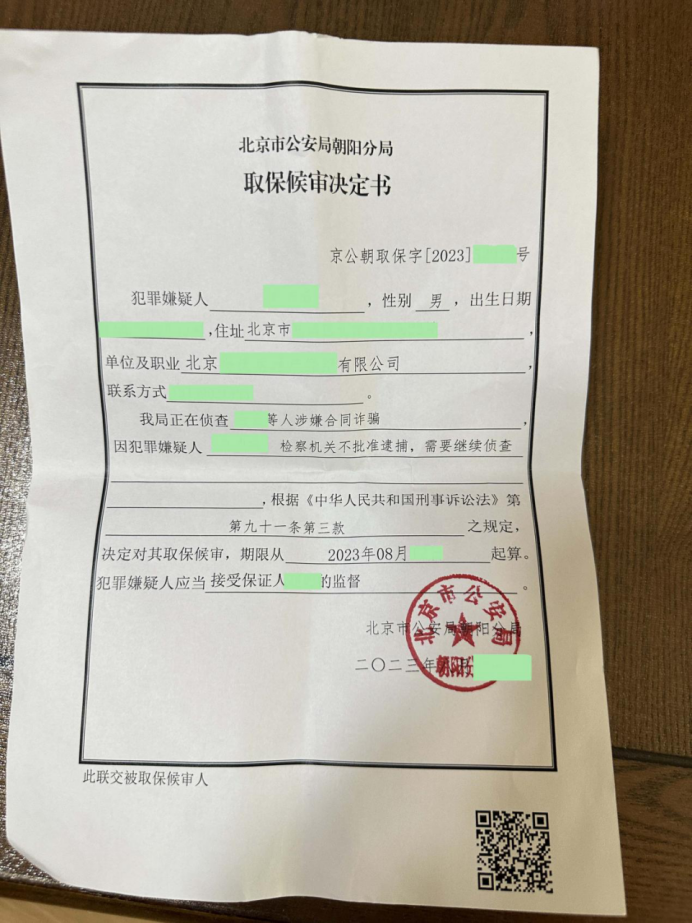 北京市公安局朝阳分局
取保候审决定书
京公朝取保字[2023]号
犯罪嫌疑人，性别 男，出生日期
，住址北京市，
单位及职业 北京有限公司，
联系方式。
我局正在侦查 等人涉嫌合同诈骗，
因犯罪嫌疑人 检察机关不批准逮捕，需要继续侦查
，根据《中华人民共和国刑事诉讼法》第
第九十一条第三款 之规定，
决定对其取保候审，期限从 2023年08月 起算。
犯罪嫌疑人应当 接受保证人的监督。
北京市公安局朝阳分局
二〇二三年
北京市公安局
此联交被取保候审人